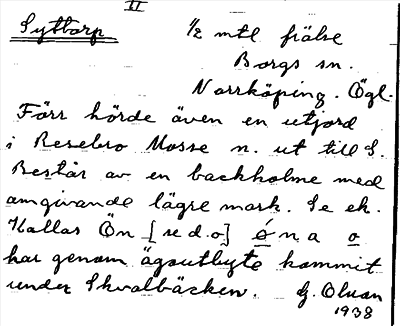 II
Syttorp 1/2 mtl. frälse
Borgs sn.
Norrköping. Ögl.
Förr hörde även en utjord
i Resebro Mosse n. ut till S.
Består av en backholme med
omgivande lägre mark. Se ek.
Kallas Ön [se d.o] ö́ n a o
har genom ägoutbyte kommit
under Skvalbäcken. G. Olson
1938